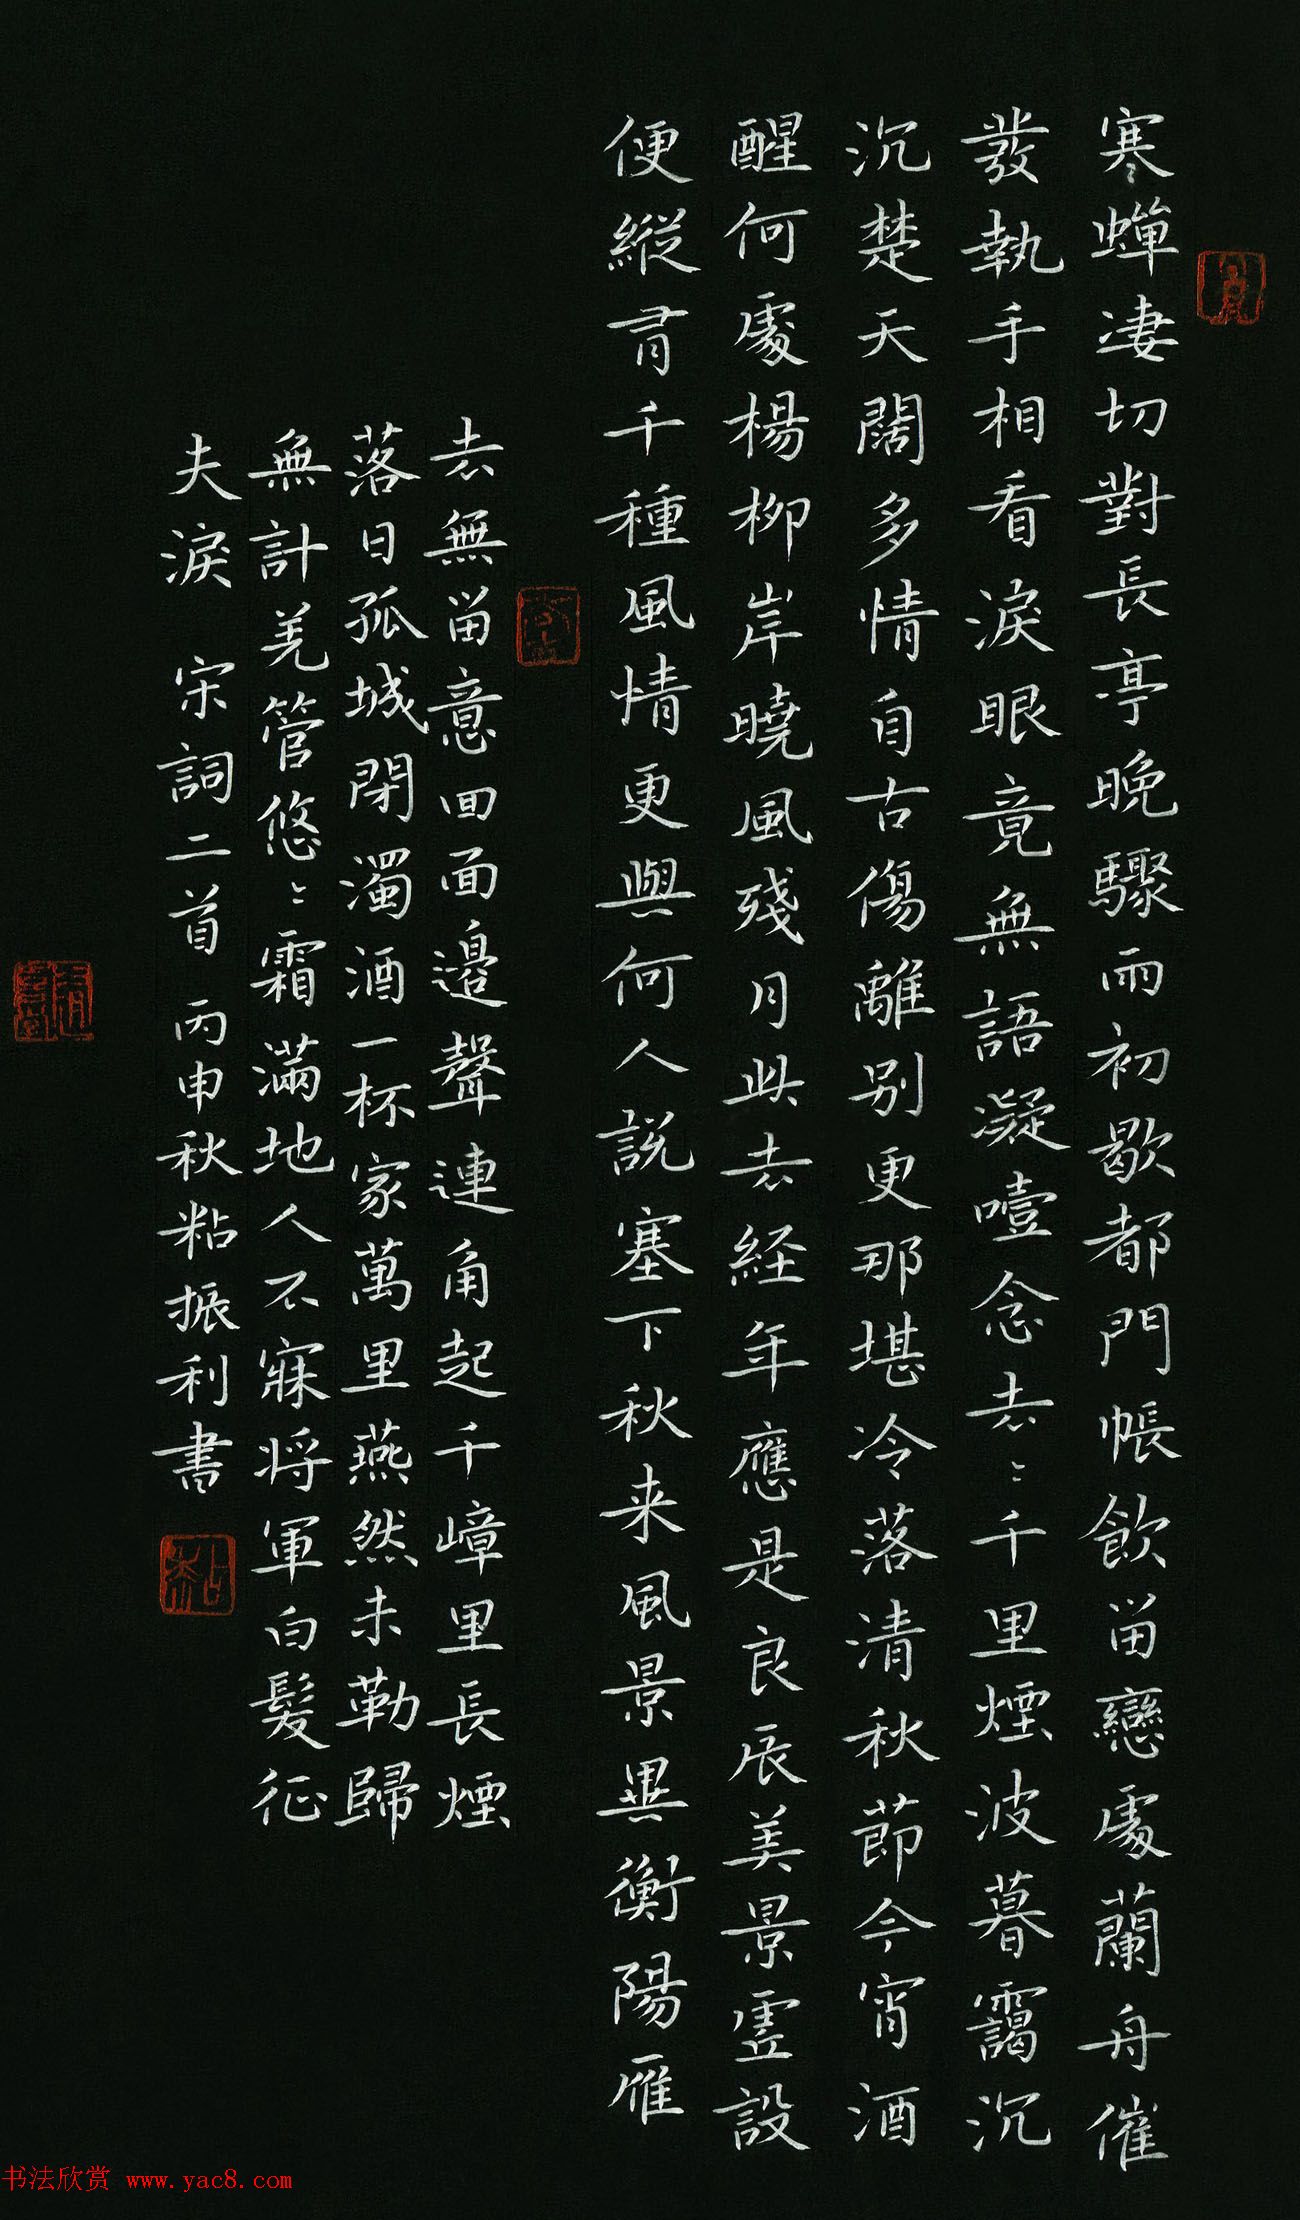 寒蟬淒切對長亭晚驟雨初歇都門帳飲留戀處蘭舟催
發執手相看淚眼竟無語凝噎念去〻千里煙波暮靄沉
沉楚天闊多情自古傷離别更那堪冷落清秋節今宵酒
醒何處楊柳岸曉風殘月此去経年應是良辰美景虛設
便縱有千種風情更與何人説塞下秋来風景異衡陽雁
去無留意四面邊聲連角起千嶂里長煙
落日孤城閉濁酒一杯家萬里燕然未勒歸
無計羌管悠〻霜滿地人不寐將軍白髮征
夫淚 宋詞二首 丙申秋粘振利書
书法欣赏 www.yac8.com